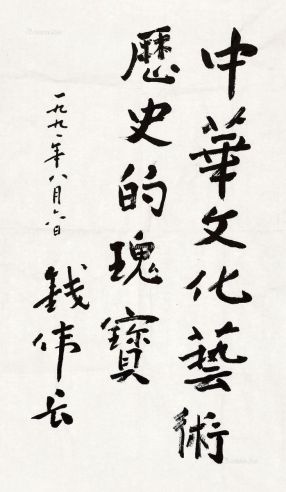 中華文化藝術
歷史的瑰寶
一九九一年八月六日
錢伟长